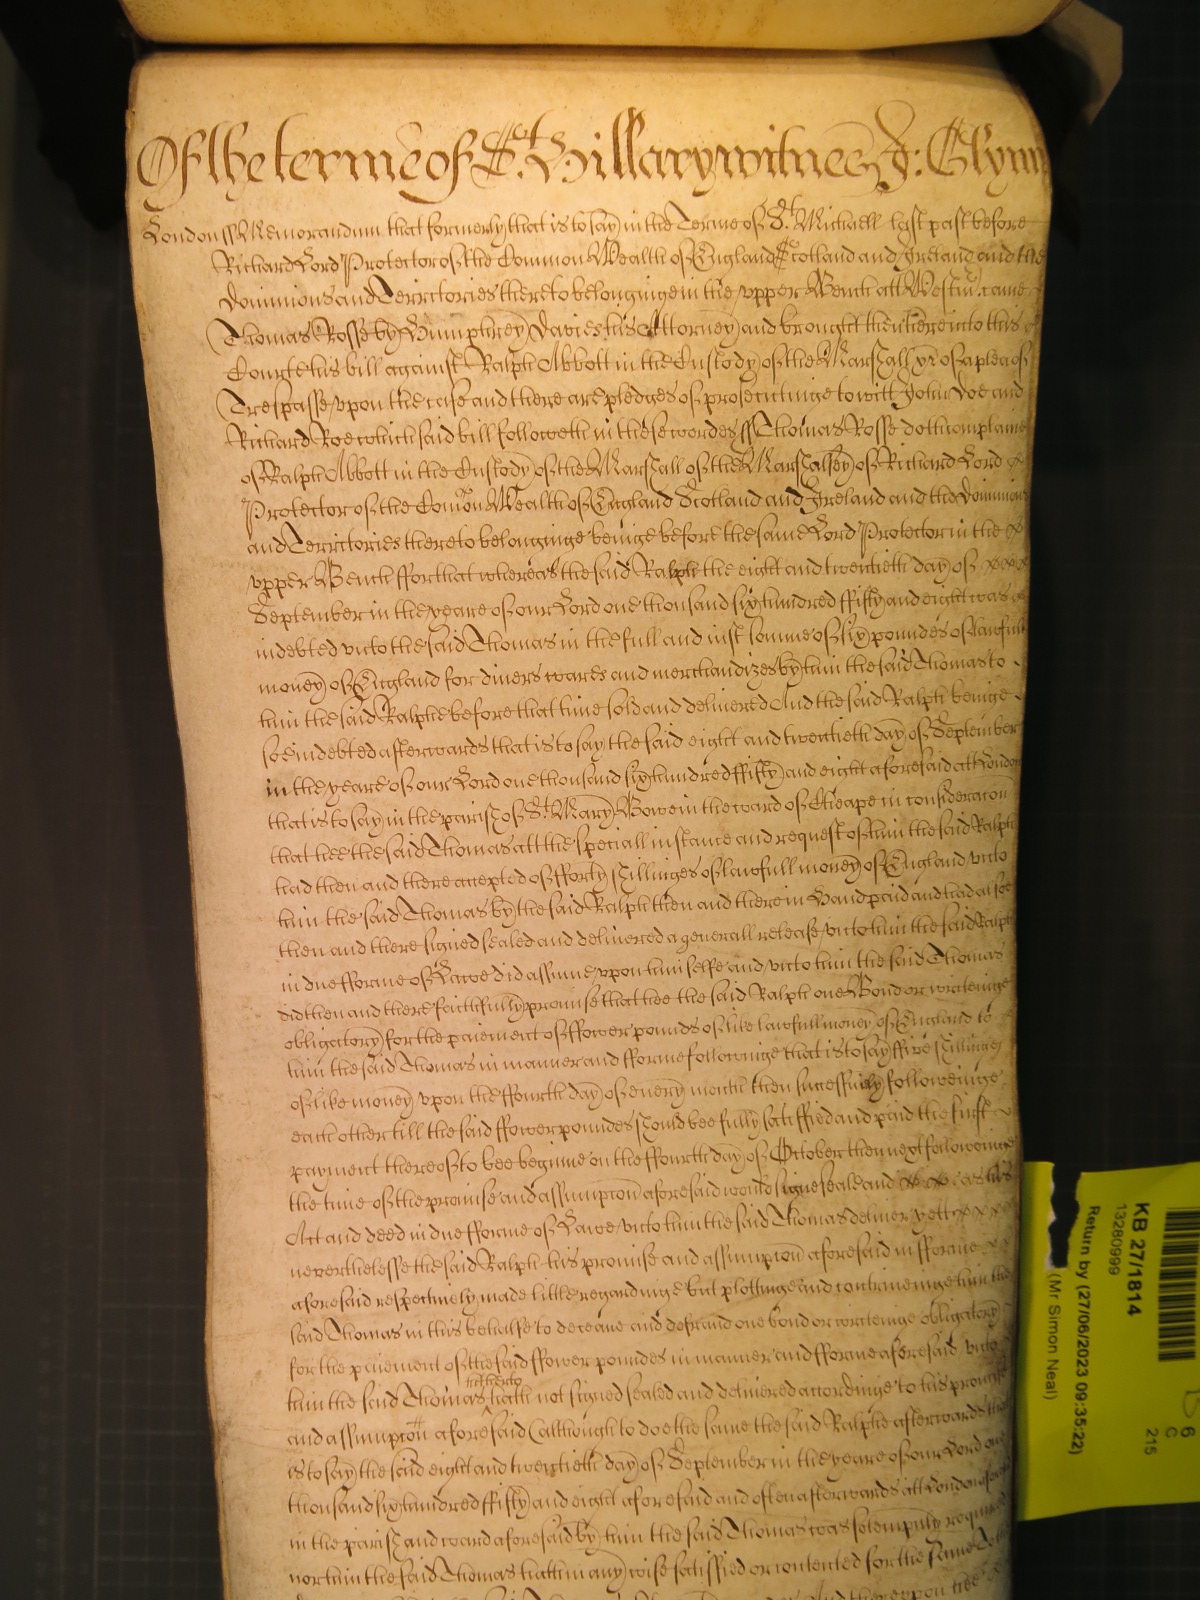 Of the terme of St. Hillary witnes J: Glynn
London ss Memorandum that formerly that is to say in the Terme of St. Michaell last past before
Richard Lord Protector of the Common Wealth of England Scotland and Ireland and the
dominions and Territories thereto belonginge in the vpper Bench att Westm. came
Thomas Rosse by Humphrey Davies his Attorney and brought then here into this
Courte his bill against Ralph Abbott in the Custody of the Marshall &c of a plea of
Trespasse vpon the case and there are pledges of prosecutinge to witt John Doe and
Richard Roe which said bill followeth in these wordes ss Thomas Rosse doth complaine
of Ralph Abbott in the Custody of the Marshall of the Marshalsey of Richard Lord
Protector of the Comon Wealth of England Scotland and Ireland and the Dominions
and Territories thereto belonginge beinge before the same Lord Protector in the
vpper Bench ffor that whereas the said Ralph the eight and twentieth day of
September in the yeare of our Lord one thousand six hundred ffifty and eight was
indebted vnto the said Thomas in the full and iust somme of six poundes of lawfull
money of England for divers wares and merchandizes by him the said Thomas to
him the said Ralphe before that time sold and delivered And the said Ralph beinge
soe indebted afterwards that is to say the said eight and twentieth day of September
in the yeare of our Lord one thousand six hundred ffifty and eight aforesaid att London
that is to say in the parish of St. Mary Bowe in the ward of Cheape in consideracon
that hee the said Thomas att the speciall instance and request of him the said Ralph
had then and there accepted of fforty shillinges of lawfull money of England vnto
him the said Thomas by the said Ralph then and there in Hand paid and had alsoe
then and there signed sealed and delivered a generall release vnto him the said Ralph
in due fforme of Lawe did assume vpon himselfe and vnto him the said Thomas
did then and there faithfully promise that hee the said Ralph one Bond or writeinge
obligatory for the paiement of ffower poundes of like lawfull money of England to
him the said Thomas in manner and fforme followinge that is to say ffive shillinges
of like money vpon the ffourth day of every month then successfully followeinge
each other till the said ffower poundes should bee fully satisfied and paid the first
payment thereof to bee begune on the ffourth day of October then next followeinge
the time of the promise and assumpcon aforesaid would signe seale and as his
Act and deed in due fforme of Lawe vnto him the said Thomas deliver yett
neverthelesse the said Ralph his promise and assumpcon aforesaid in fforme
aforesaid respectively made little regardinge but plottinge and contriveinge him the
said Thomas in this behalfe to deceave and defraud one bond or writeinge obligatory
for the paiement of the said ffower poundes in manner and fforme aforesaid vnto
him the said Thomas hitherto hath not signed sealed and delivered accordinge to his promise
and assumpcon aforesaid (although to doe the same the said Ralphe afterwards that
is to say the said eight and twentieth day of September in the yeare of our Lord one
thousand six hundred ffifty and eight aforesaid and often afterwards att London
in the parish and ward aforesaid by him the said Thomas was solempnly
nor him the said Thomas hath in any wise satisfied or contented for the same
And therevpon hee
KB 27/1814
13280999
Return by (27/06/2023 09:35:22)
(Mr Simon Neal)
6
C
215